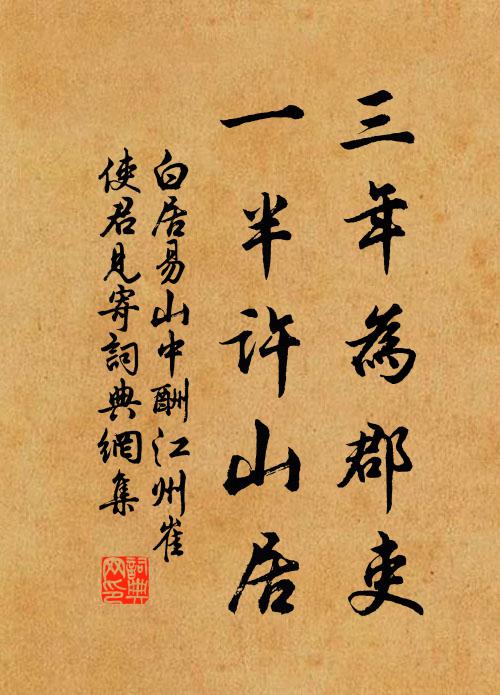 三年為郡吏
一半許山居
白居易山中酬江州崔
使君見寄詞典網集
詞典
网印